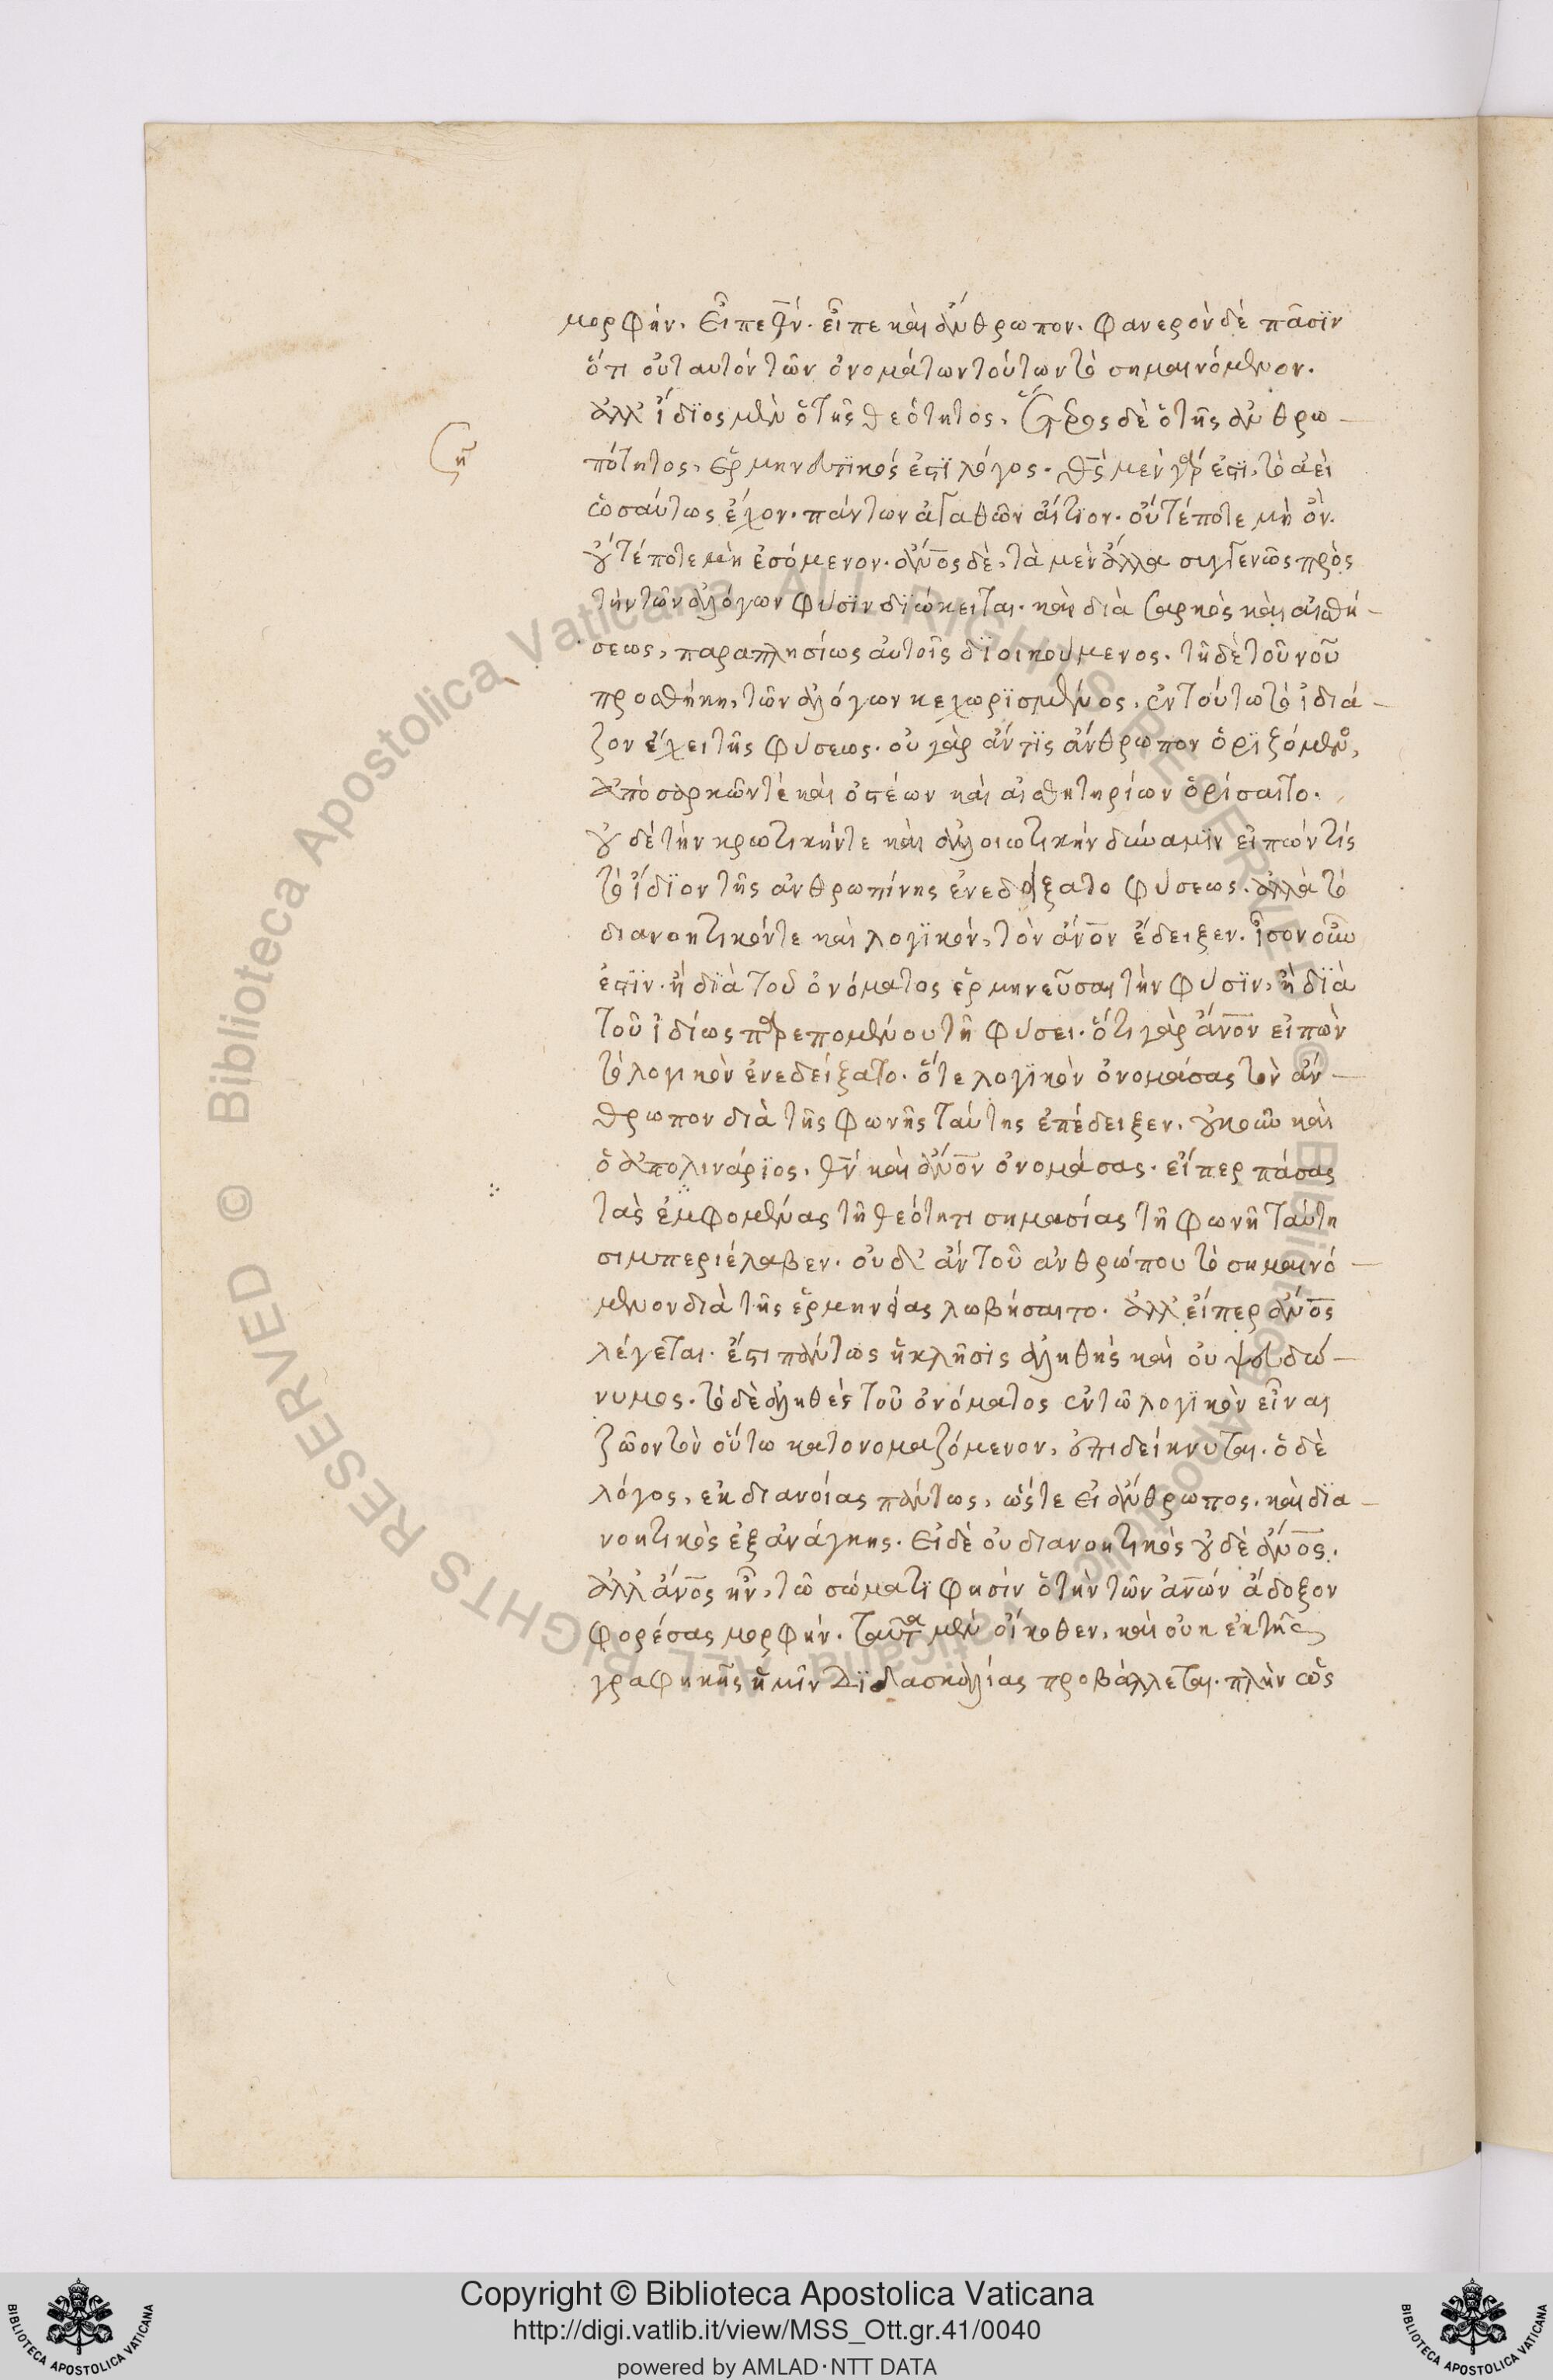 μορφήν. εἶπε θν̅. εἶπε καὶ ἄνθρωπον. φανερὸν δὲ πᾶσϊν
ὅτι οὐ ταυτόν τῶν ὀνομάτων τούτων τὸ σημαινόμενον.
ἀλλ' ἴδϊος μὲν ὁ τῆς θεότητος. ἕτερος δὲ ὁ τῆς ἀνθρω
πότητος, ἑρμηνευτϊκός ἐστϊ λόγος. θς̅ μεν γάρ ἐστϊ, τὸ ἀεὶ
ὡσαύτως ἔχον. πάντων ἀγαθῶν αἴτϊον. οὔτέ ποτε μὴ ὂν.
οὔτέ ποτε μὴ ἐσόμενον. ἄνο̅ς̅ δὲ, τὰ μεν ἄλλα συγγενῶς πρὸς
τὴν τῶν ἀλόγων φύσϊν δϊώκειται. καὶ διὰ σαρκὸς καὶ αἰσθή
σεως, παραπλησίως αὐτοῖς δϊοικούμενος. τῆ δὲ τοῦ νοῦ
προσθήκη, τῶν ἀλόγων κεχωρϊσμένος, ἐν τούτω τὸ ἰδιά
ζον ἔχει τῆς φύσεως. οὐ γὰρ ἄν τϊς ἄνθρωπον ὁρϊζόμενος,
ἀπὸ σαρκῶν τέ καὶ ὀστέων καὶ αἰσθητηρίων ὁρίσαιτο.
οὐ δὲ τὴν κρωτικήν τε καὶ ἀλλοιωτικήν δύναμϊν εἰπών τίς
τὸ ἴδϊον τῆς ἀνθρωπίνης ἐνεδείξατο φύσεως. ἀλλὰ τὸ
διανοητικόν τε καὶ λογϊκόν, τὸν ἄνο̅ν̅ ἔδειξεν. ἶσον οὖν
ἐστϊν. ἢ δϊὰ τοῦ ὀνόματος ἑρμηνεῦσαι τὴν φύσϊν, ἢ δϊὰ
τοῦ ἰδίως παρεπομένου τῆ φύσει. ὅτι γὰρ ἄνο̅ν̅ εἰπὼν
τὸ λογικὸν ἐνεδείξατο. ὅτε λογϊκὸν ὀνομάσας τὸν ἄν
θρωπον διὰ τῆς φωνῆς ταύτης ἐπέδειξεν. οὐκοῦν καὶ
ὁ ἀπολινάρϊος, θν̅ καὶ ἄνο̅ν̅ ὀνομάσας. εἴπερ πάσας
τὰς ἐμφομένας τῆ θεότητι σημασίας τῆ φωνῆ ταύτη
σιμπεριέλαβεν. οὐδ' ἄν τοῦ ἀνθρώπου τὸ σημαινό
μενον διὰ τῆς ἑρμηνείας λωβήσαιτο. ἀλλ' εἴπερ ἄνο̅ς̅
λέγεται. ἔστι πάντως ἡ κλῆσις ἀληθής καὶ οὐ ψευδώ
νυμος. τὸ δὲ ἀληθές τοῦ ὀνόματος ἐν τῶ λογϊκὸν εἶναι
ζῶον τὸν οὕτω κατονομαζόμενον, ἐπιδείκνυται. ὁ δὲ
λόγος, ἐκ διανοίας πάντως, ὥστε εἰ ἄνθρωπος. καὶ δϊα
νοητικὸς ἐξ ἀνάγκης. εἰ δὲ οὐ διανοητικὸς οὐδὲ ἄνο̅ς̅.
ἀλλ' ἄνο̅ς̅ ἦν, τῶ σώματϊ φησὶν ὁ τὴν τῶν ἀν̅ων̅ ἄδοξον
φορέσας μορφήν. ταῦτα μὲν οἴκοθεν, καὶ οὐκ ἐκ τῆς
γραφηκῆς ἡμῖν δϊδασκαλίας προβάλλεται. πλὴν ὡς